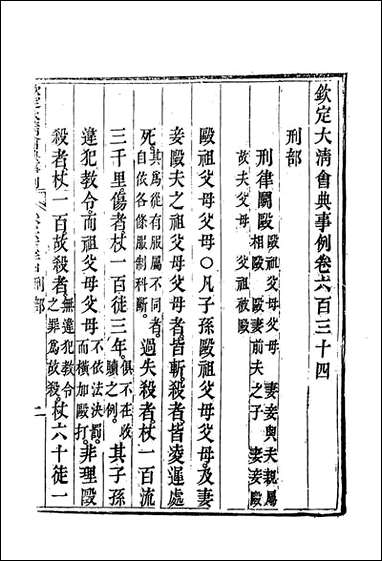 欽定大清會典事例卷六百三十四
刑部
刑律鬭毆
毆祖父母父母 妻妾與夫親屬
相毆 毆妻前夫之子 妻妾毆
故夫父母 父祖被毆
毆祖父母父母○凡子孫毆祖父母父母。及妻
妾毆夫之祖父母父母者。皆斬。殺者。皆凌遲處
死。其為從有服屬不同者。自依各條服制科斷。過失殺者。杖一百流
三千里。傷者。杖一百徒三年。俱不在收贖之例。其子孫
違犯教令。而祖父母父母不依法決罰。而橫加毆打。非理毆
殺者。杖一百。故殺者。無違犯教令之罪為故殺。杖六十徒一
刑部